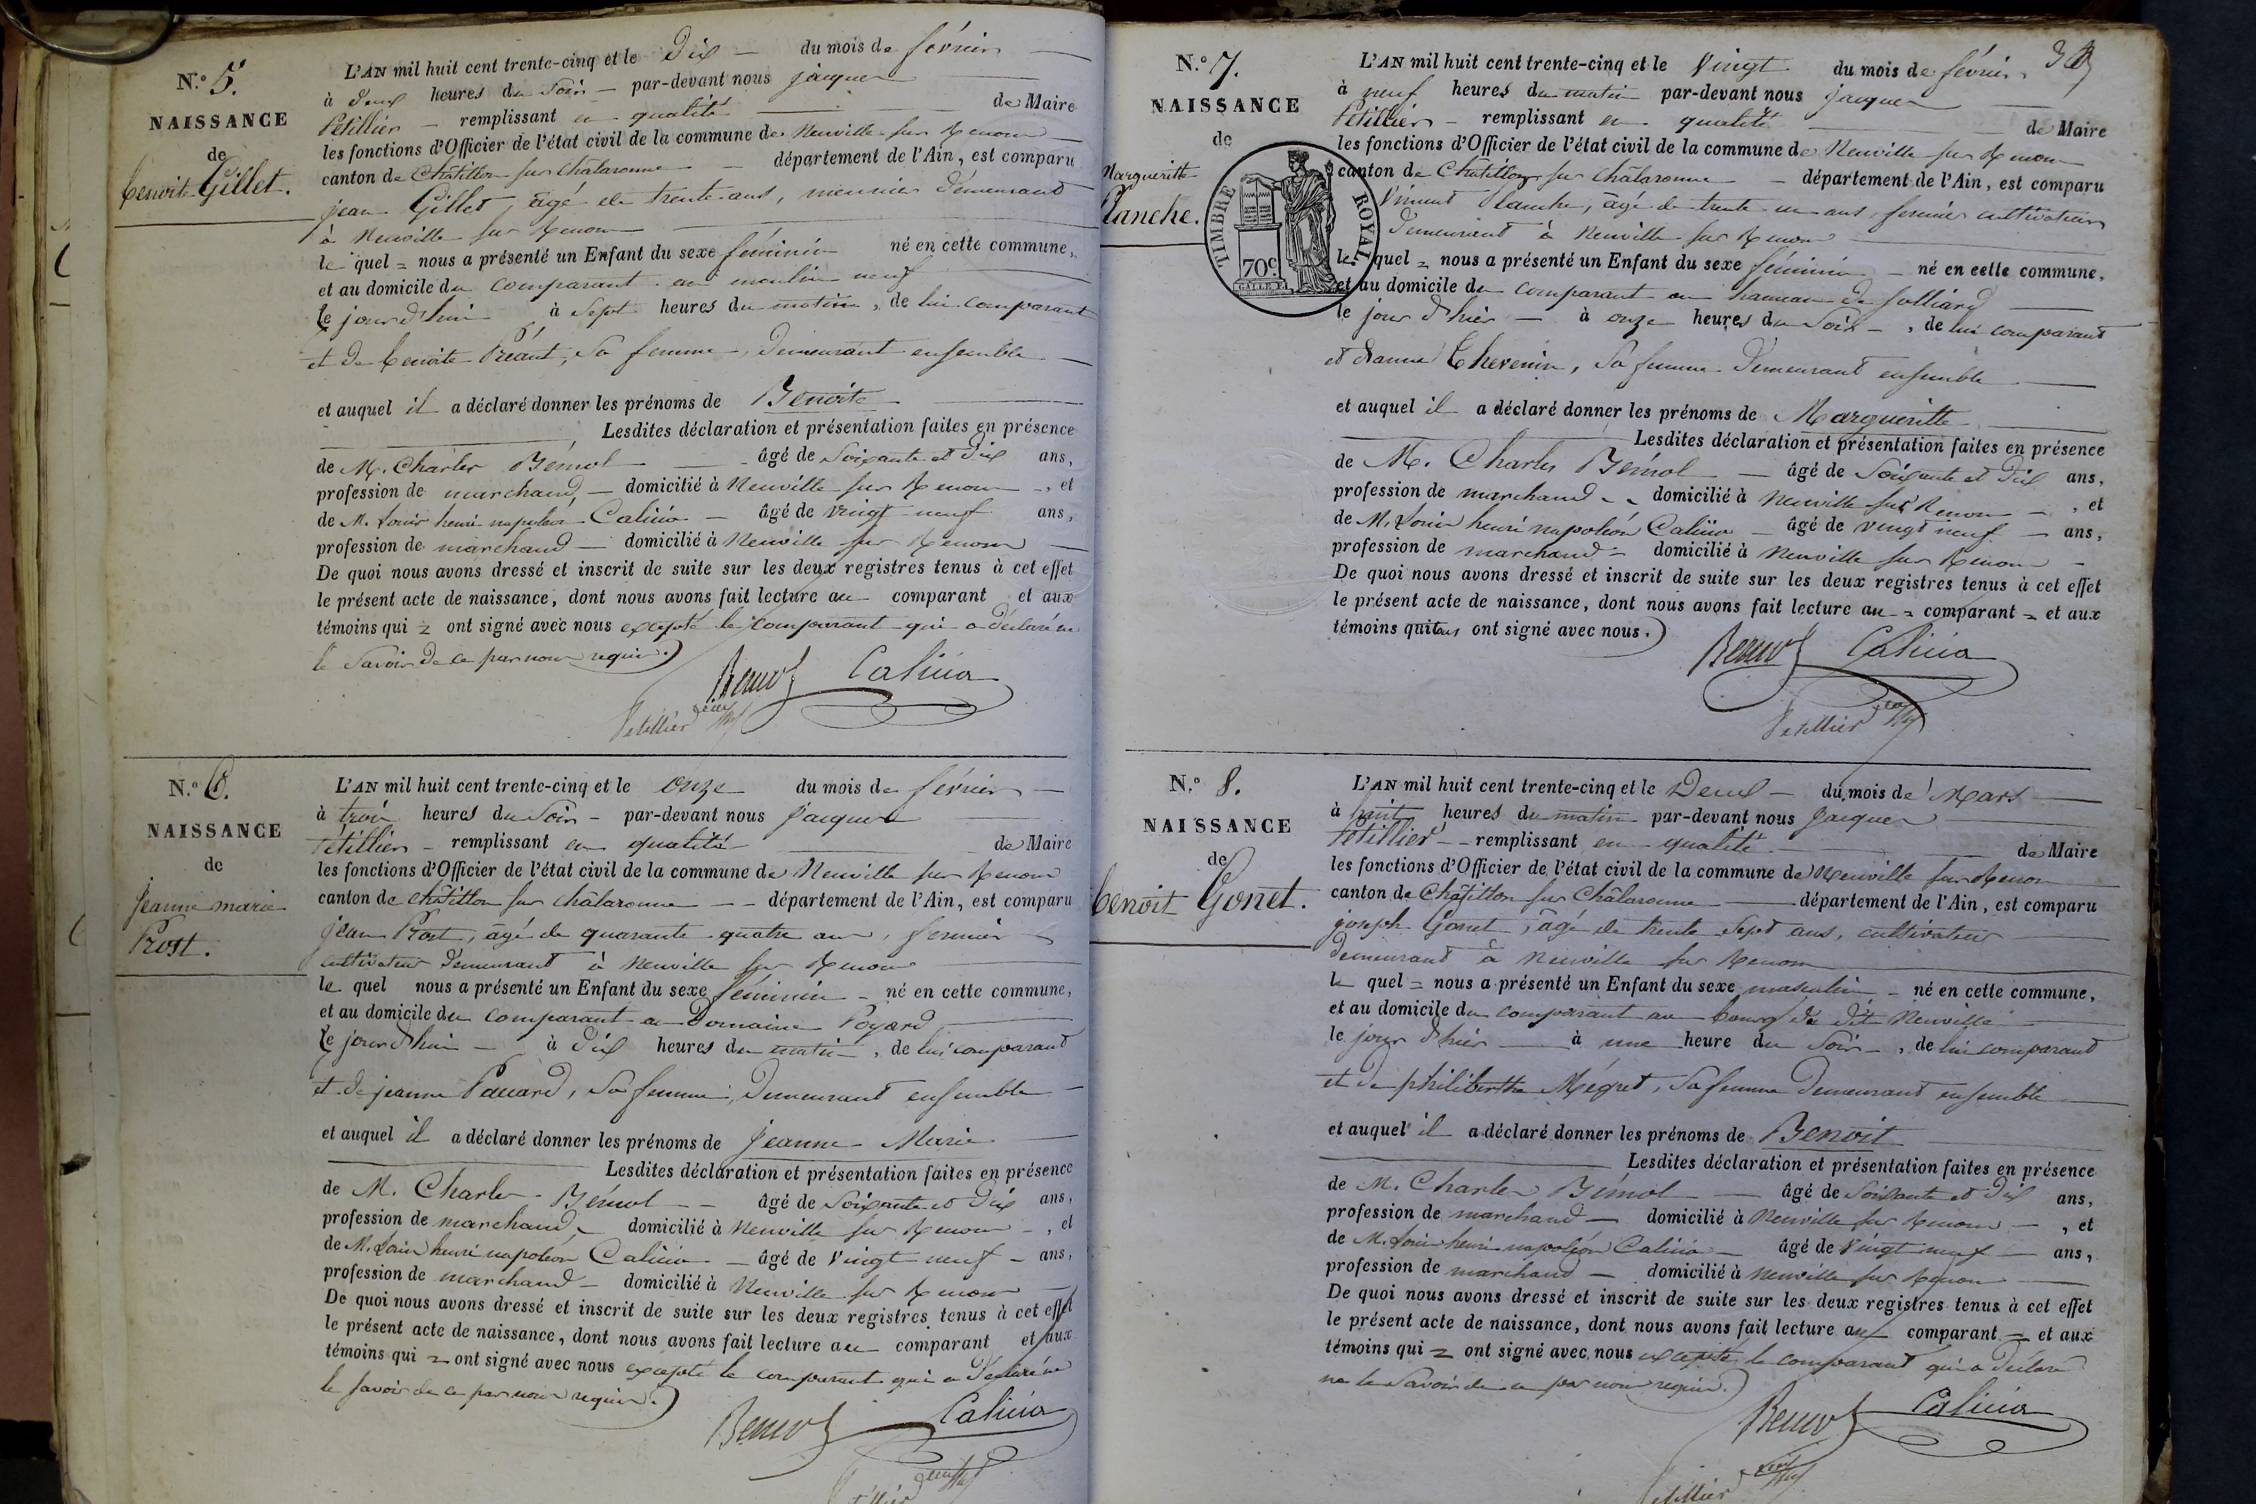 N.° 5.
NAISSANCE
de
benoite Gillet.
L'AN mil huit cent trente-cinq et le Dix du mois de février
à deux heures du Soir par-devant nous jacques
Pétillier remplissant en qualité de Maire
les fonctions d'Officier de l'état civil de la commune de Neuville sur Renom
canton de Châtillon sur Châlaronne département de l'Ain, est comparu
jean Gillet, âgé de trente ans, meunier demeurant
à Neuville sur Renom
le quel nous a présenté un Enfant du sexe féminin né en cette commune,
et au domicile du comparant au moulin neuf
le jourd'hui à Sept heures du matin, de lui comparant
et de benoite Préant, Sa femme, demeurant ensemble
et auquel il a déclaré donner les prénoms de Benoite
Lesdites déclaration et présentation faites en présence
de M. Charles Bémol âgé de Soixante et Dix ans,
profession de marchand, domicilié à Neuville sur Renom, et
de M. Louis henri napoléon Calicia âgé de vingt neuf ans,
profession de marchand domicilié à Neuville sur Renom
De quoi nous avons dressé et inscrit de suite sur les deux registres tenus à cet effet
le présent acte de naissance, dont nous avons fait lecture au comparant et aux
témoins qui ont signé avec nous excepté le comparant qui a déclaré ne
le Savoir de ce par nous requis.
Bemol Calicia
Petillier
N.° 6.
NAISSANCE
de
Jeanne marie
Prost.
L'AN mil huit cent trente-cinq et le onze du mois de février
à trois heures du Soir par-devant nous Jacques
Pétillier remplissant en qualité de Maire
les fonctions d'Officier de l'état civil de la commune de Neuville sur Renom
canton de châtillon sur châlaronne département de l'Ain, est comparu
jean Prost, âgé de quarante quatre ans, fermier
cultivateur demeurant à Neuville sur Renom
le quel nous a présenté un Enfant du sexe féminin né en cette commune,
et au domicile du comparant au Domaine Poyard
le jourd'hui à dix heures du matin, de lui comparant
et de jeanne Pauard, Sa femme, Demeurant ensemble
et auquel il a déclaré donner les prénoms de Jeanne Marie
Lesdites déclaration et présentation faites en présence
de M. Charles Bémol âgé de Soixante et Dix ans,
profession de marchand, domicilié à Neuville sur Renom, et
de M. Louis henri napoléon Calicia âgé de Vingt neuf ans,
profession de marchand domicilié à Neuville sur Renom
De quoi nous avons dressé et inscrit de suite sur les deux registres tenus à cet effet
le présent acte de naissance, dont nous avons fait lecture au comparant et aux
témoins qui ont signé avec nous excepté le comparant qui a déclaré ne
le savoir de ce par nous requis.
Bemol Calicia
Petillier
N.° 7.
NAISSANCE
de
Margueritte
Planche.
TIMBRE ROYAL
70c
L'AN mil huit cent trente-cinq et le Vingt du mois de février
à neuf heures du matin par-devant nous jacques
Pétillier remplissant en qualité de Maire
les fonctions d'Officier de l'état civil de la commune de Neuville sur Renom
canton de Châtillon sur Châlaronne département de l'Ain, est comparu
Vincent Planche, âgé de trente un ans, fermier cultivateur
demeurant à Neuville sur Renom
le quel nous a présenté un Enfant du sexe féminin né en cette commune,
et au domicile du comparant au hameau de Solliard
le jour d'hier à onze heures du Soir, de lui comparant
et d'anne Thevenin, Sa femme demeurant ensemble
et auquel il a déclaré donner les prénoms de Margueritte
Lesdites déclaration et présentation faites en présence
de M. Charles Bémol âgé de Soixante et Dix ans,
profession de marchand domicilié à Neuville sur Renom, et
de M. Louis henri napoléon Calicia âgé de vingt neuf ans,
profession de marchand domicilié à Neuville sur Renom
De quoi nous avons dressé et inscrit de suite sur les deux registres tenus à cet effet
le présent acte de naissance, dont nous avons fait lecture au comparant et aux
témoins qui tous ont signé avec nous.
Bemol Calicia
Petillier
N.° 8.
NAISSANCE
de
benoit Gonet.
L'AN mil huit cent trente-cinq et le Deux du mois de Mars
à huit heures du matin par-devant nous Jacques
Pétillier remplissant en qualité de Maire
les fonctions d'Officier de l'état civil de la commune de Neuville sur Renom
canton de Châtillon sur Châlaronne département de l'Ain, est comparu
joseph Gonet, âgé de trente Sept ans, cultivateur
demeurant à Neuville sur Renom
le quel nous a présenté un Enfant du sexe masculin né en cette commune,
et au domicile du comparant au bourg du dit Neuville
le jour d'hier à une heure du Soir, de lui comparant
et de philiberthe Mégret, Sa femme Demeurant ensemble
et auquel il a déclaré donner les prénoms de Benoit
Lesdites déclaration et présentation faites en présence
de M. Charles Bémol âgé de Soixante et Dix ans,
profession de marchand domicilié à Neuville sur Renom, et
de M. Louis henri napoléon Calicia âgé de Vingt neuf ans,
profession de marchand domicilié à Neuville sur Renom
De quoi nous avons dressé et inscrit de suite sur les deux registres tenus à cet effet
le présent acte de naissance, dont nous avons fait lecture au comparant et aux
témoins qui ont signé avec nous excepté le comparant qui a déclaré
ne le Savoir de ce par nous requis.
Bemol Calicia
Petillier